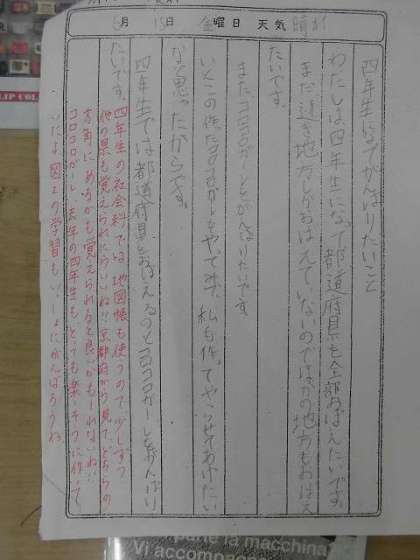 月 日 金曜日 天気 晴れ
四年生になってがんばりたいこと
わたしは四年生になって都道府県を全部おぼえたいです。
まだ近き地方しかおぼえていないのでほかの地方もおぼえ
たいです。
またコロコロガーレもがんばりたいです。
いとこの作ったコロコロガーレをやってみて、私も作ってやらせてあげたい
なと思ったからです。
四年生では都道府県をおぼえるのとコロコロガーレをがんばり
たいです。
四年生の社会科では、地図帳も使うので、少しずつ
他の県も覚えられたらいいね!!京都府から見て、どちらの
方角にあるかも覚えられると良いかもしれないね!!
コロコロガーレ、去年の四年生もとっても楽しそうに作って
いたよ。図工の学習もいっしょにがんばろうね
LIP COL
parte la macchina
Vi accompagne